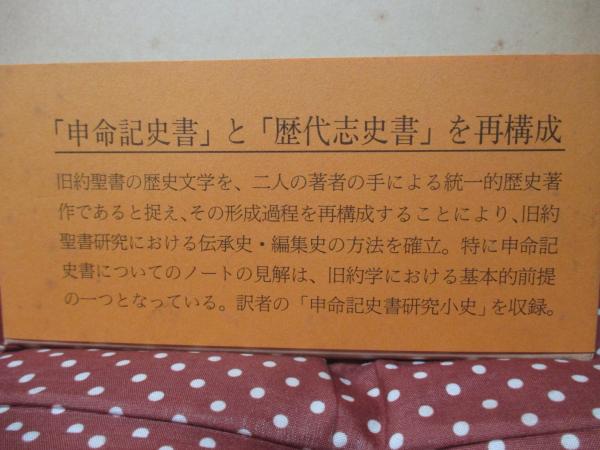 「申命記史書」と「歴代志史書」を再構成
旧約聖書の歴史文学を、二人の著者の手による統一的歴史著
作であると捉え、その形成過程を再構成することにより、旧約
聖書研究における伝承史・編集史の方法を確立。特に申命記
史書についてのノートの見解は、旧約学における基本的前提
の一つとなっている。訳者の「申命記史書研究小史」を収録。